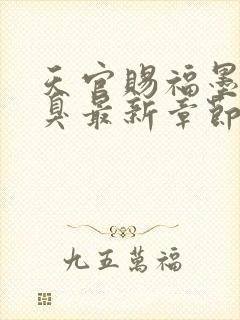 天官賜福墨
臭最新章節
九五萬福